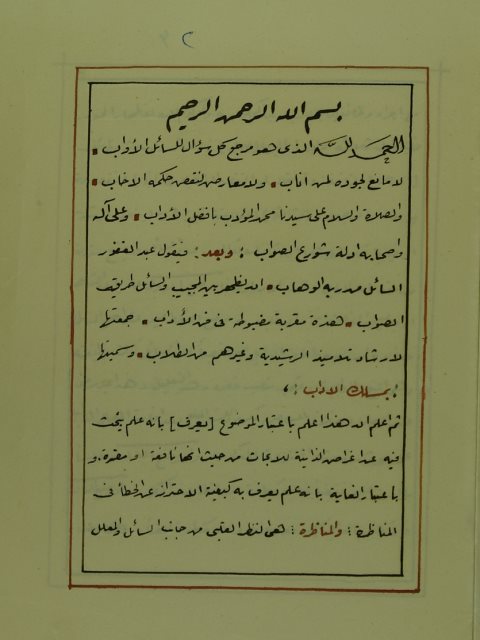 ٢
بسم الله الرحمن الرحيم
الحمد لله الذى هو مرجع كل سؤال للسائل الأواب .
لا مانع لجوده لمن اناب . ولا معارض لنقض حكمه الا خاب .
والصلاة والسلام على سيدنا محمد المؤدب بافضل الأداب . وعلى آله
واصحابه ادلة شوارع الصواب : وبعد : فيقول عبد الغفور
السائل من ربه الوهاب . ان يظهر بين المجيب والسائل طريق
الصواب . هذه مقربة مضبوطة فى فن الأداب . جمعتها
لارشاد تلاميذ الرشيدية وغيرهم من الطلاب . وسميتها
: بمسلك الاداب : ،
ثم اعلم ان هذا علم باعتبار الموضوع [يعرف] بانه علم يبحث
فيه عن اعراض الذاتية للابحاث من حيث انها نافعة او مضرة . و
باعتبار الغاية بانه علم يعرف به كيفية الاحتراز عن الخطأ فى
المناظرة : والمناظرة : هى النظر القلبى من جانب السائل والمعلل